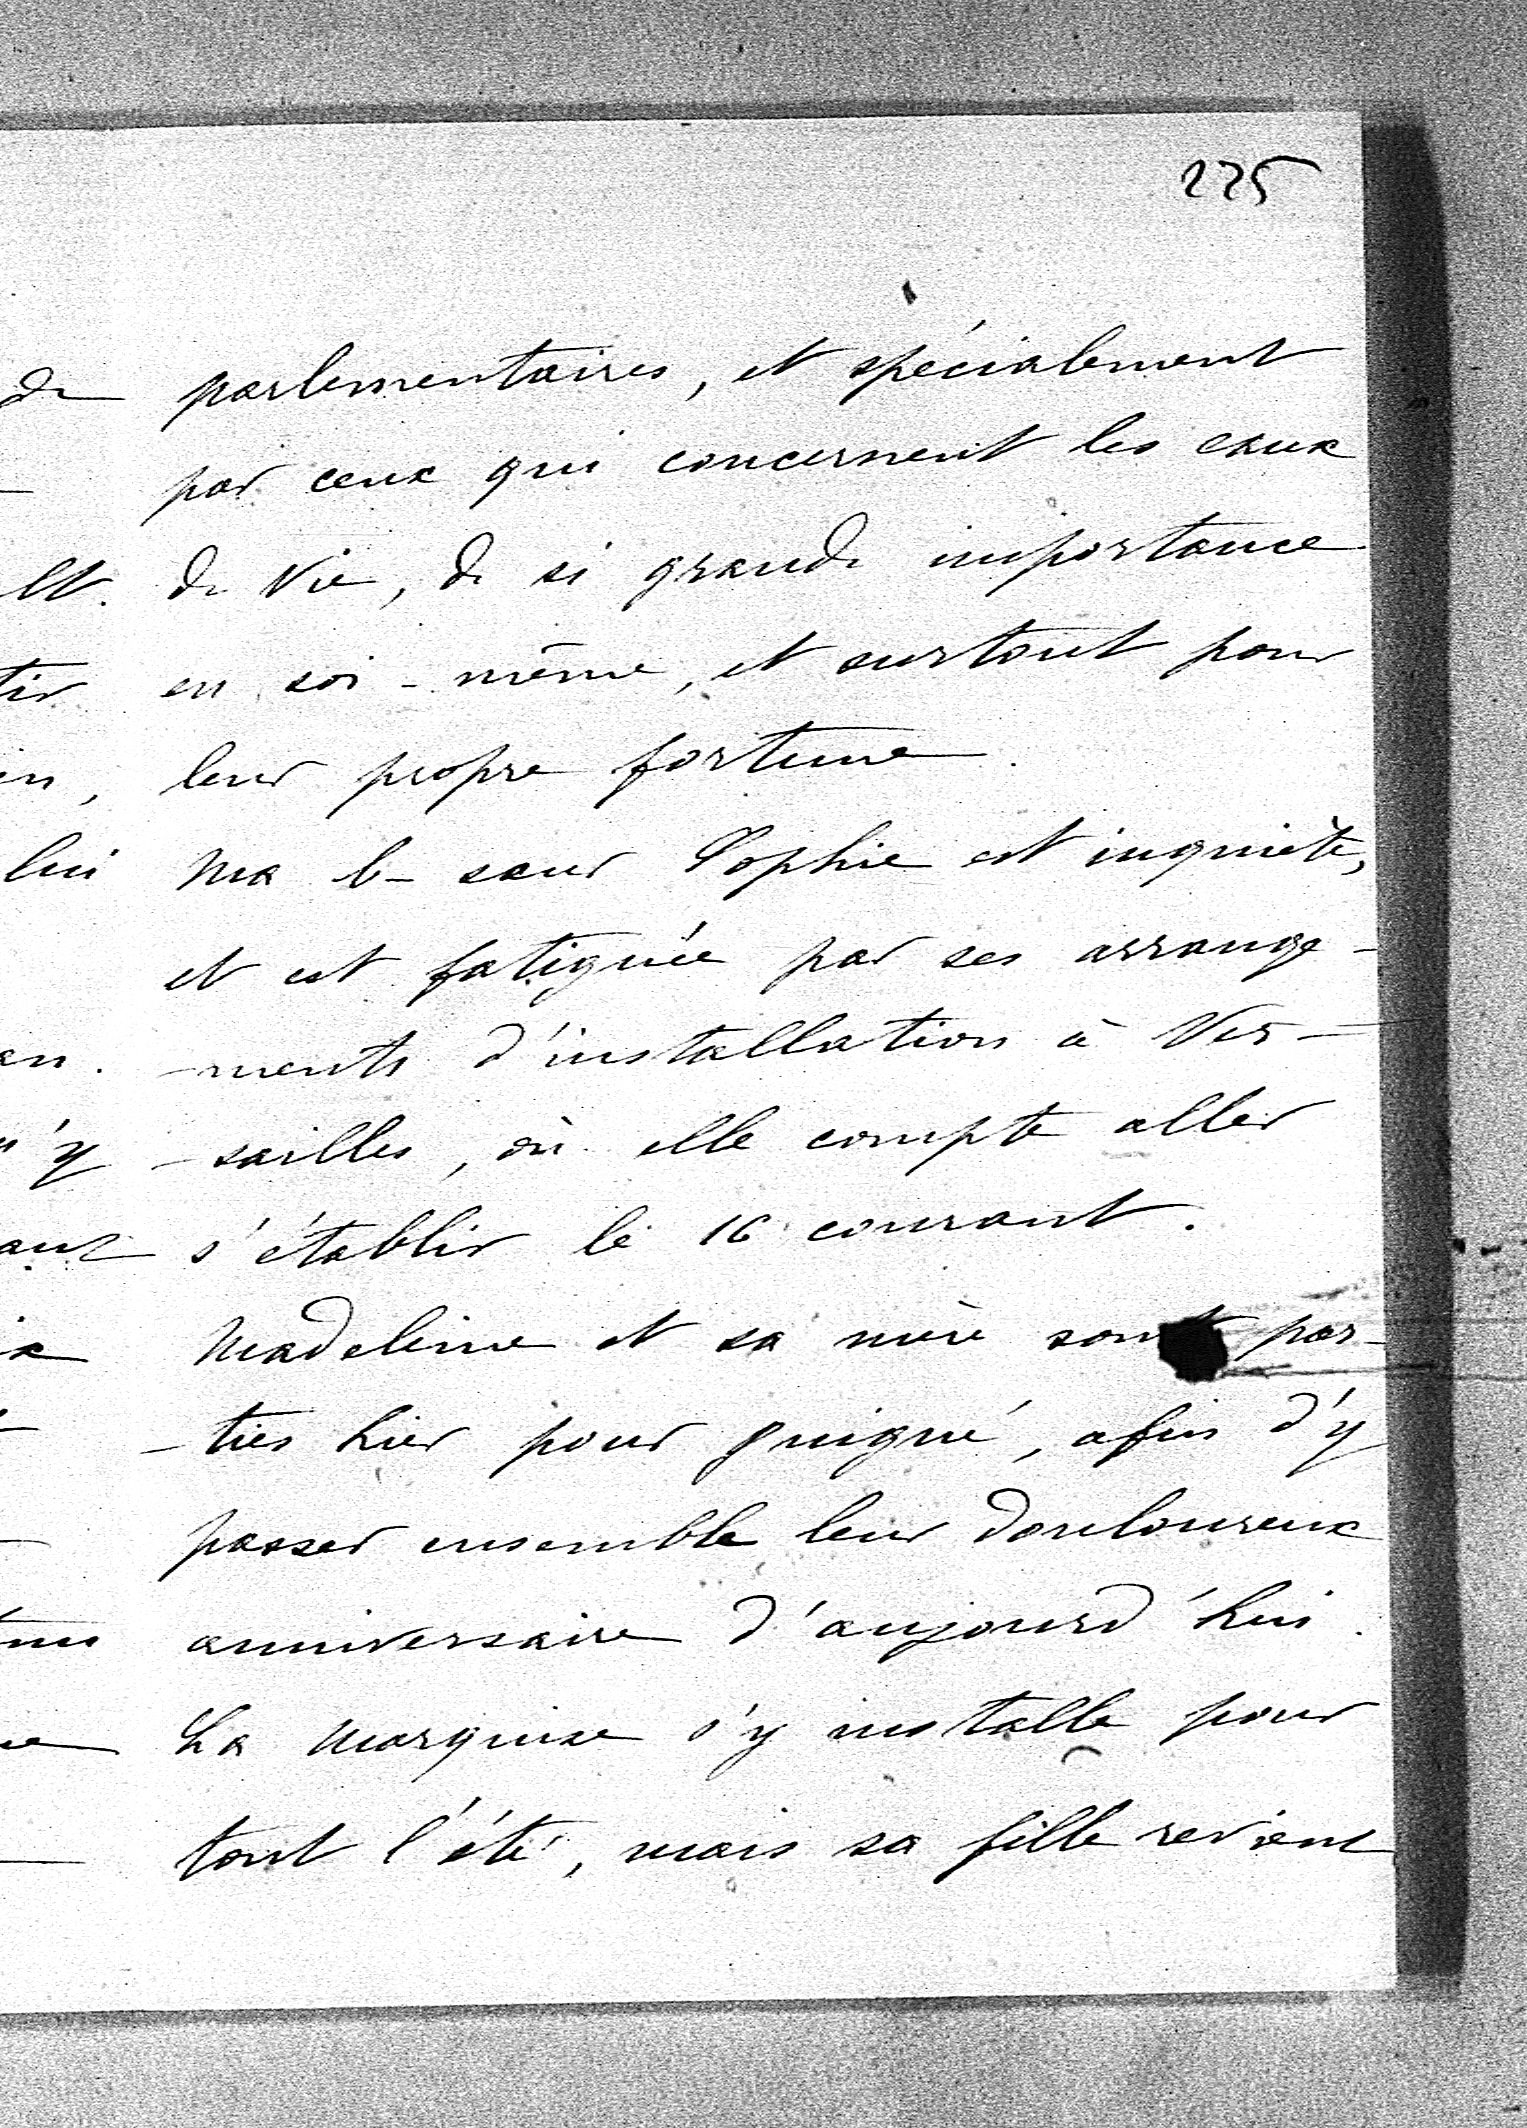 225
parlementaires, et spécialement
par ceux qui concernent les eaux
de vie, de si grande importance
en soi-même, et surtout pour
leur propre fortune.
Ma b- sœur Sophie est inquiète,
et est fatiguée par ses arrange-
-ments d'installation à Ver-
-sailles, où elle compte aller
s'établir le 16 courant.
Madeleine et sa mère sont par-
-ties hier pour Guigné, afin d'y
passer ensemble leur douloureux
anniversaire d'aujourd'hui.
La Marquise s'y installe pour
tout l'été, mais sa fille revient